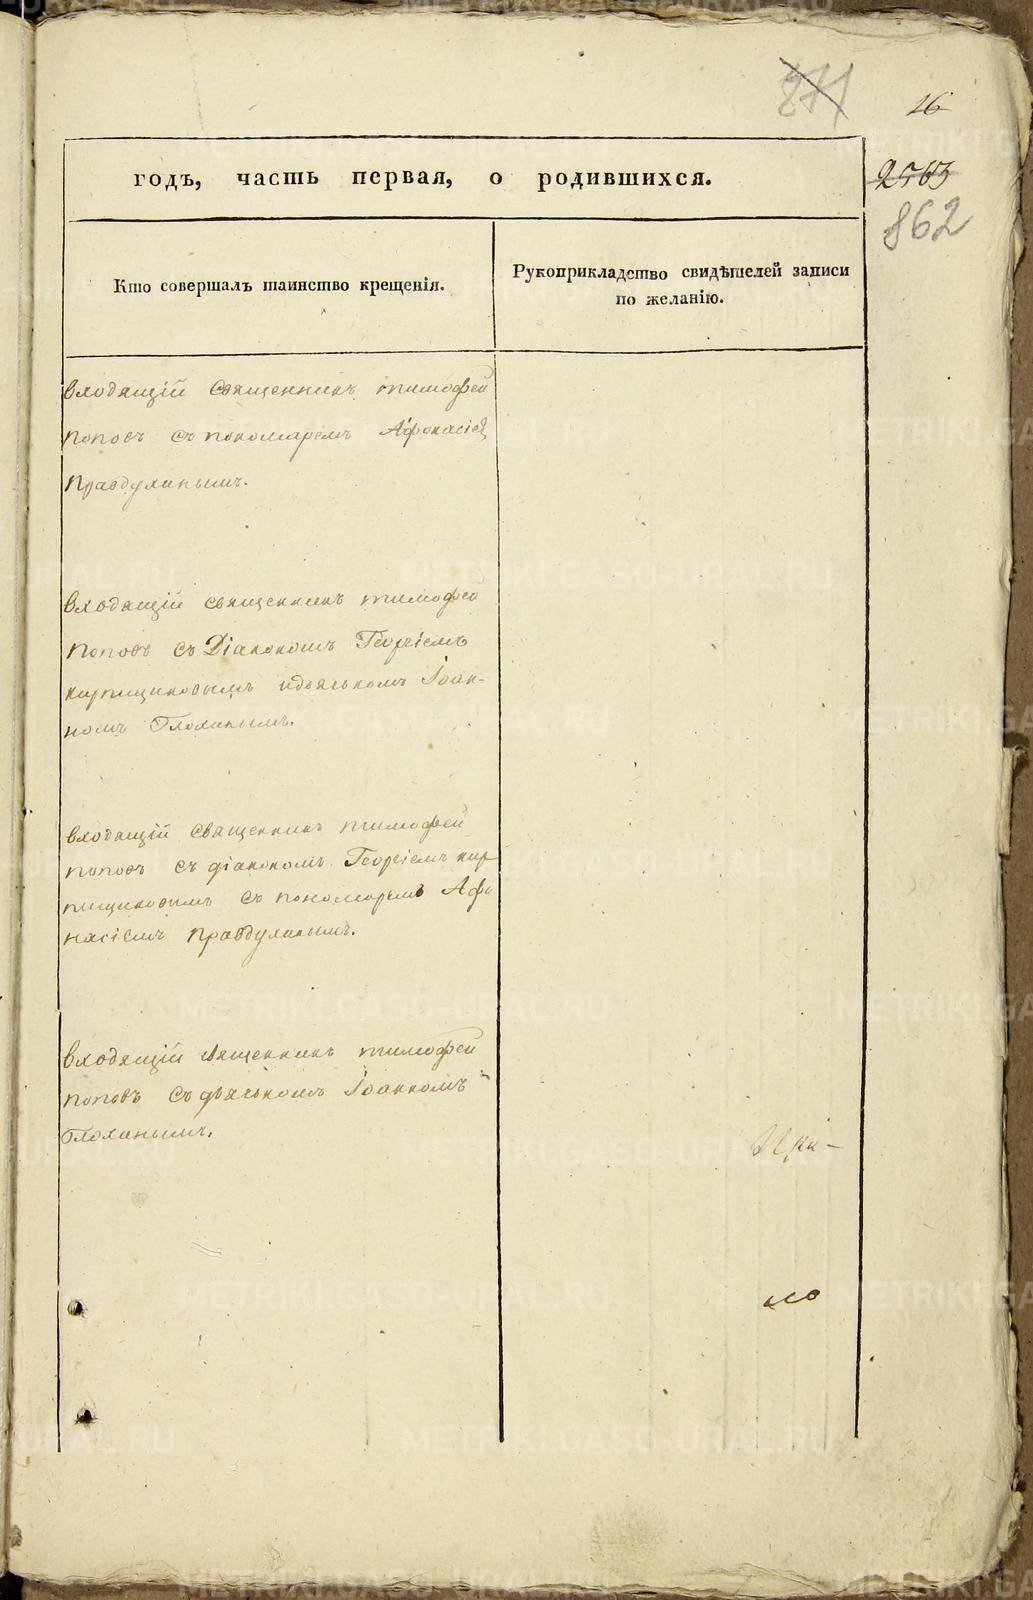 271
16
годъ, часть первая, о родившихся.
2563
862
Кто совершалъ таинство крещенія.
Рукоприкладство свидѣтелей записи
по желанію.
входящій священникъ тимофей
поповъ съ пономаремъ Афонасіей
Правдухинымъ.
входящій священникъ тимофей
поповъ съ Діакономъ Георгіемъ
кирпищиковымъ идьячькомъ Іоан-
номъ Глохинымъ.
входящій священникъ тимофей
поповъ съ діакономъ Георгіемъ кир
пищиковымъ съ пономоремъ Афо
насіемъ правдухинымъ.
входящій священникъ тимофей
поповъ съ дьячькомъ Іоанномъ
Глохинымъ.
ло
METRIKI.GASO-URAL.RU